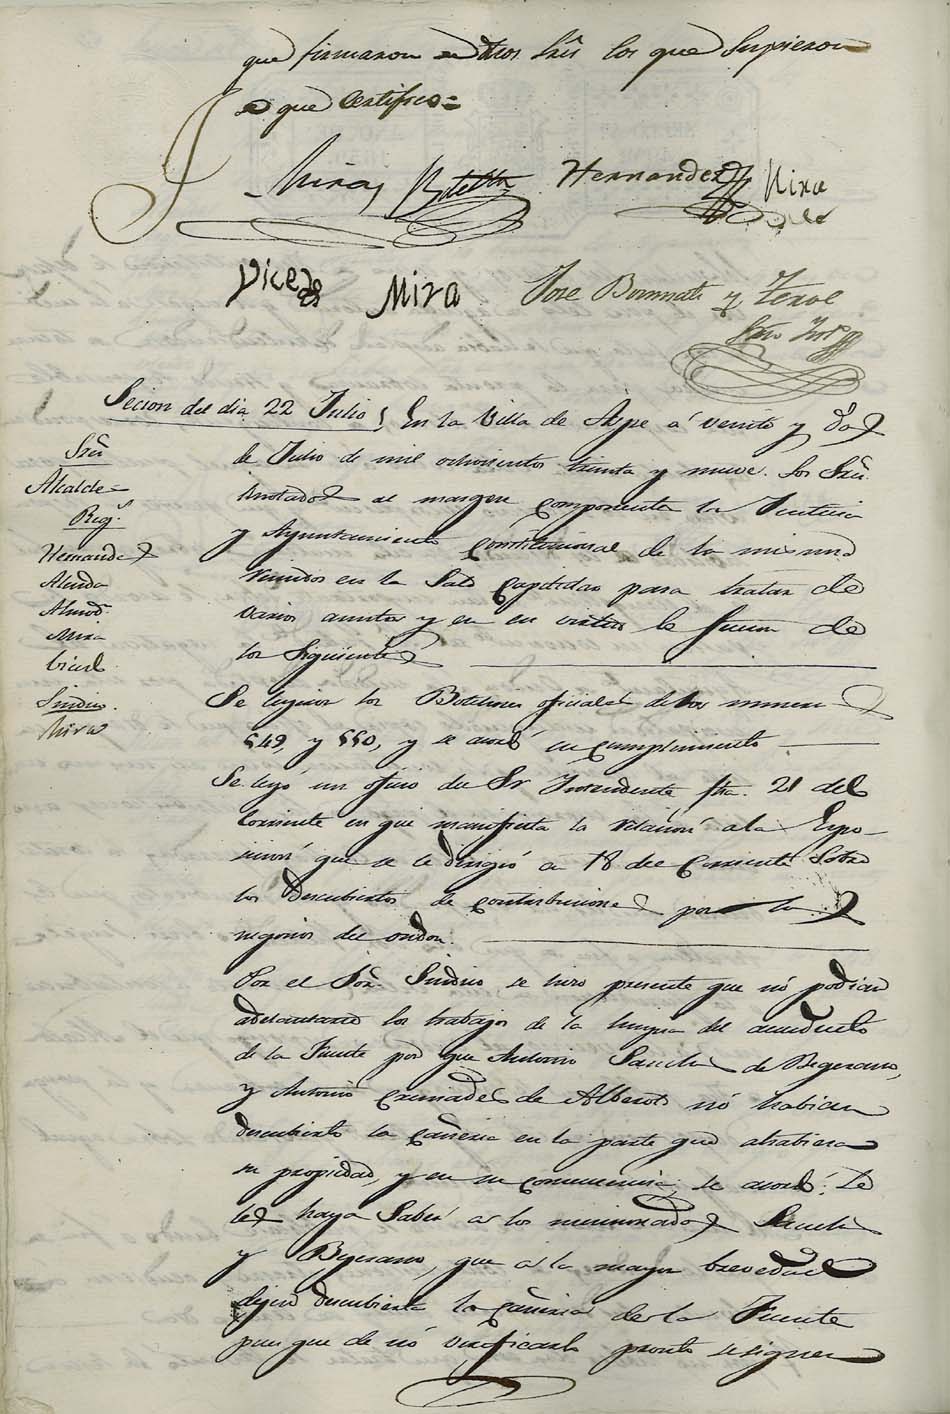 que firmaron dichos Sres. los que supieron
de que Certifico =
Mira Botella Hernandez Mira
Vicedo Mira Jose Bonmati y Terol
Srio Intº
Secion del dia 22 Julio
En la Villa de Aspe á veinte y dos
de Julio de mil ochocientos treinta y nueve. los Sres.
Anotados al margen componentes la Justicia
y Ayuntamiento Constitucional de la misma
reunidos en la Sala Capitular para tratar de
varios asuntos y en su virtud lo fueron de
los Siguientes
Sres.
Alcalde =
Regs.
Hernandez
Almodr.
Mira
Sindico.
Mira
Se leyeron los Boletines oficiales de los numeros
549, y 550, y se acordó su cumplimiento
Se leyó un oficio del Sr Intendente fha. 21 del
Corriente en que manifiesta la relacion á la Expo-
sicion que se le dirigió en 18 del Corriente Sobre
los descubiertos de contribuciones por los
negocios del ondon.
Por el Sor. Sindico se hizo presente que nó podian
adelantarse los trabajos de la limpia del acueducto
de la Fuente por que Antonio Sanchis de Begerano,
y Antonio Cremades de Alberto nó habian
descubierto la Cañeria en la parte que atrabiesa
su propiedad, y en su consecuencia se acordó: Se
les haga Saber á los mencionados Sanchis
y Begerano, que á la mayor brevedad
dejen descubierta la Cañeria de la Fuente
pues que de nó verificarlo pronto se siguen